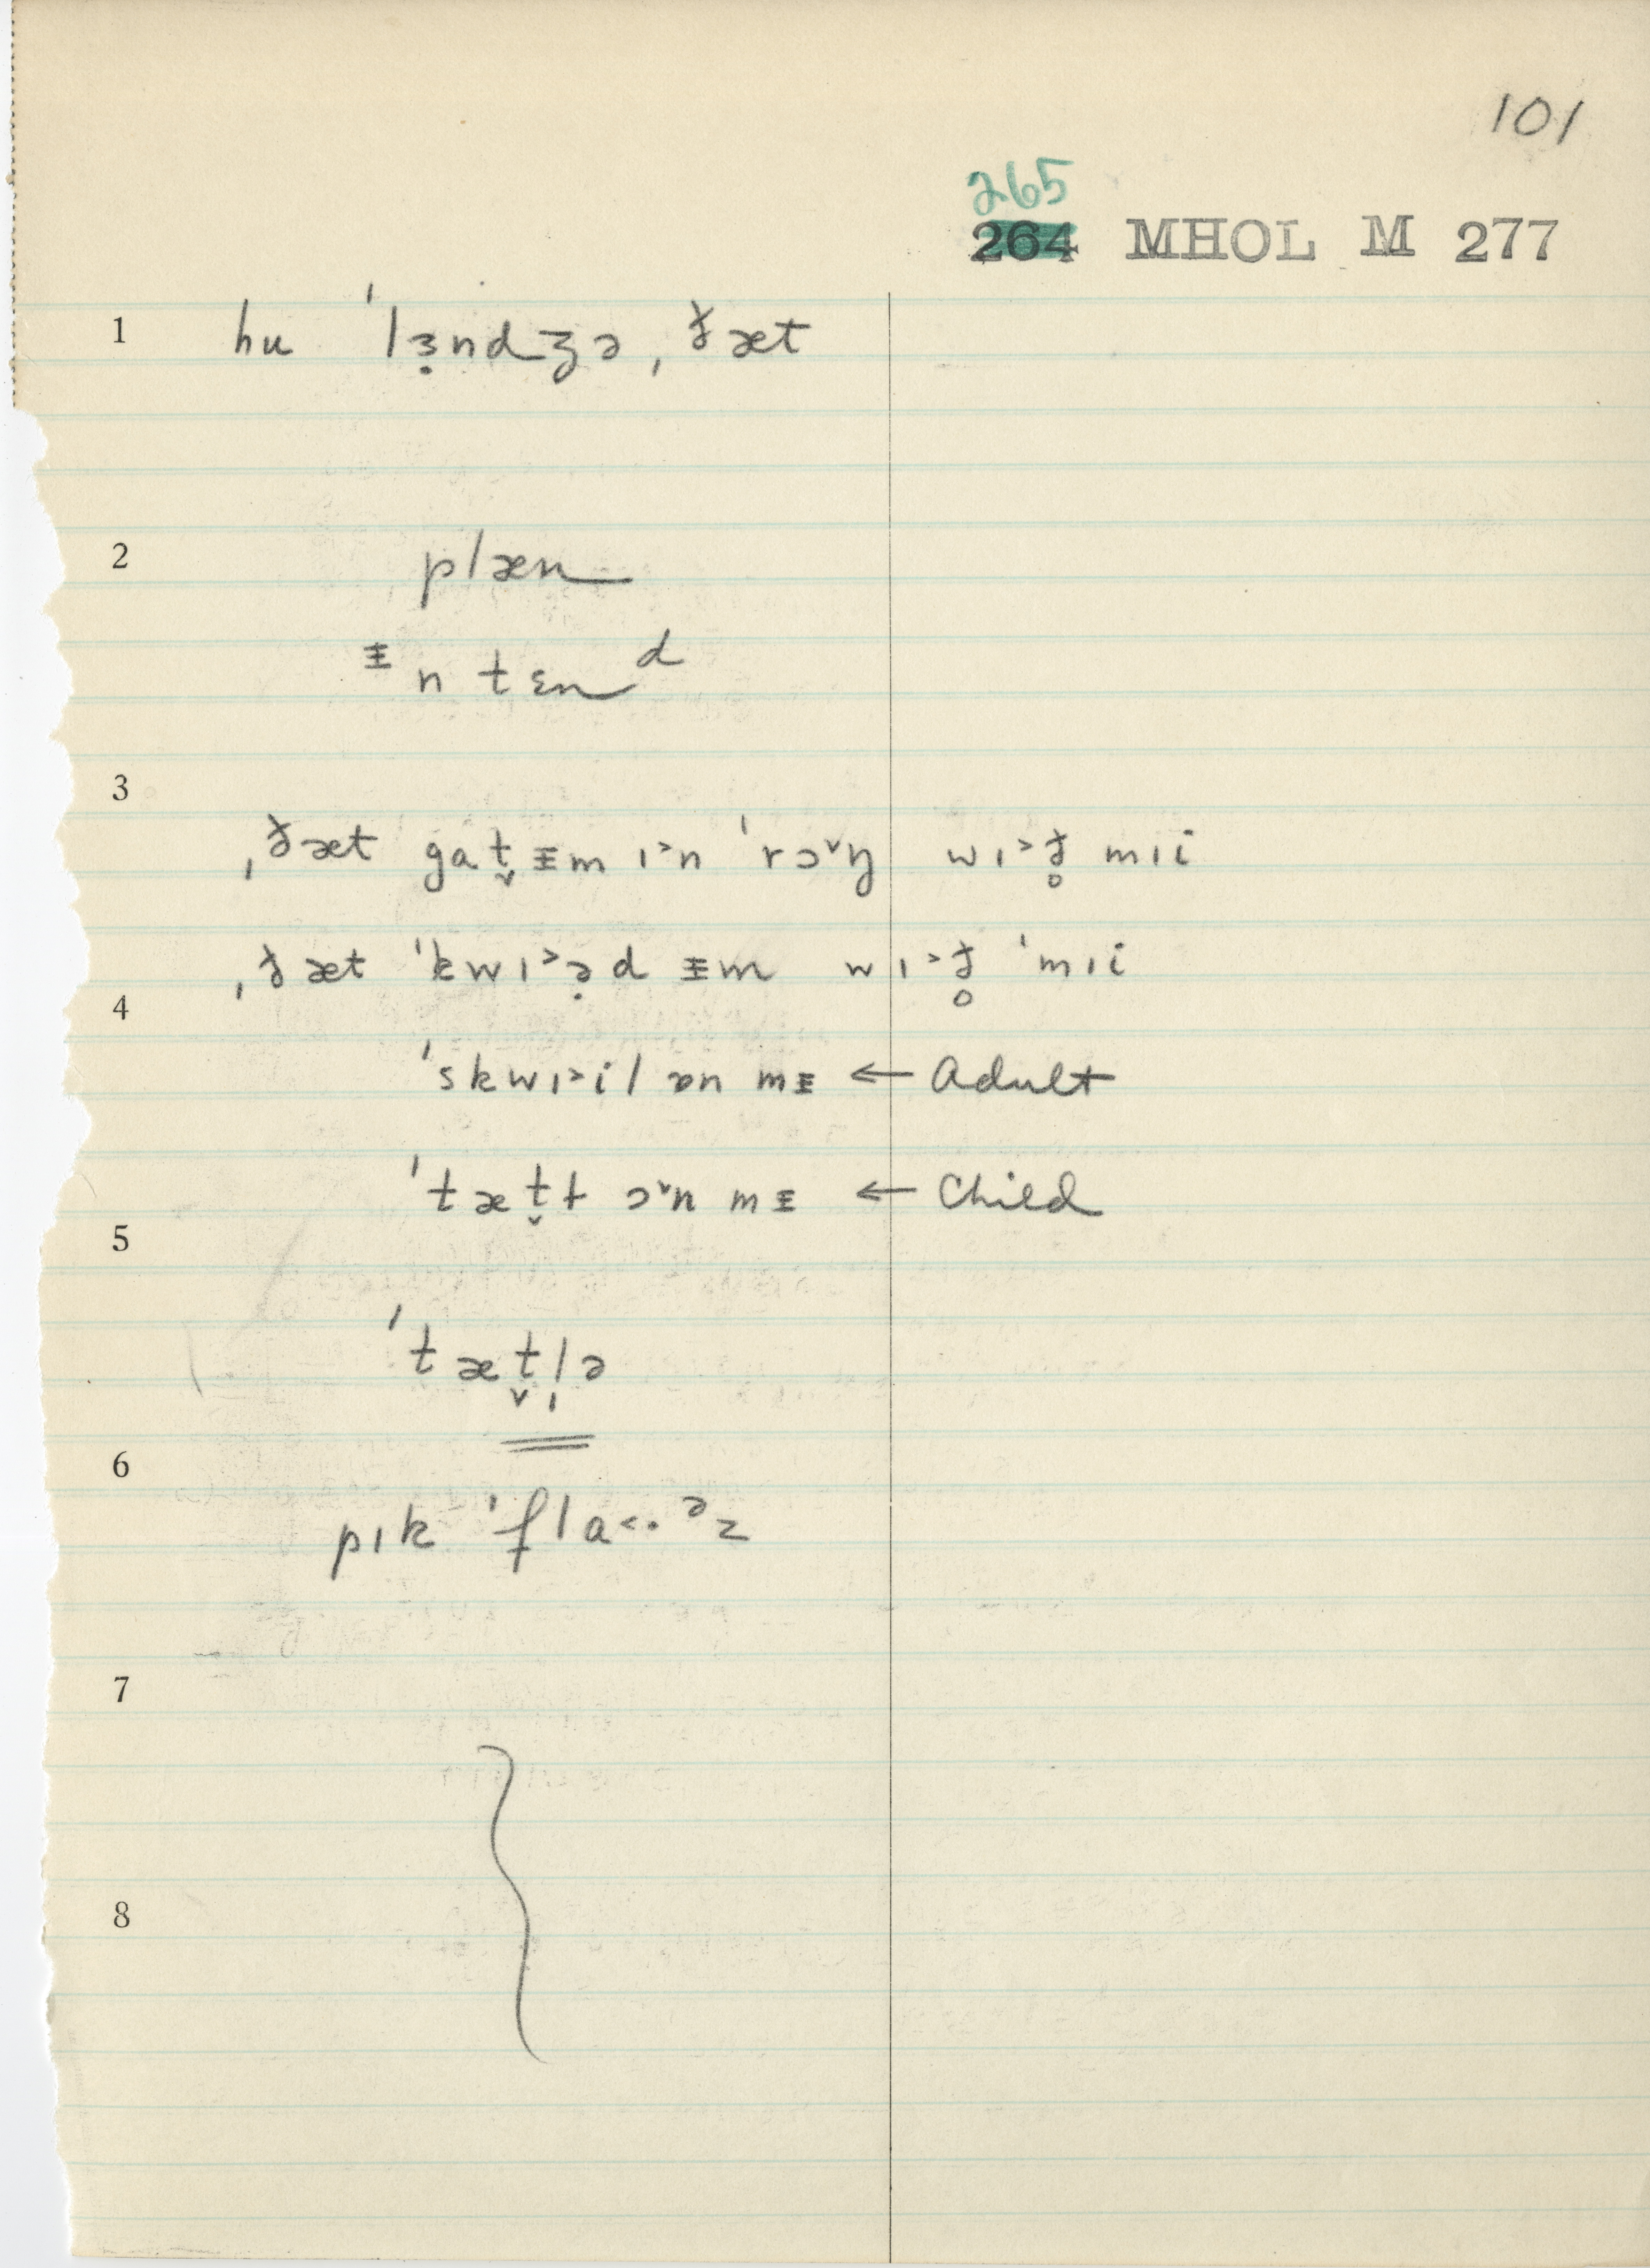 101
265
264 MHOL M 277
1 hu ˈlɜ̣ndʒə ˌðæt
2
plæn
ᵻn tɛnᵈ
3
ˌðæt gat̬ ᵻm ɪ˃n ˈrɔ˅ŋ wɪ˃ð̥ mɪi
ˌðæt ˈkwɪ˃ə̣d ᵻm wɪ˃ð̥ ˈmɪi
4
ˈskwɪ˃il ɒn mᵻ ← Adult
ˈtæt̬ɫ ɔ˅n mᵻ ← Child
5
ˈtæt̬l̩ə
6
pɪk ˈflɑ˂· ᵊz
7
8